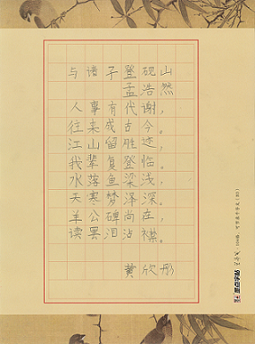 与诸子登砚山
孟浩然
人事有代谢,
往来成古今。
江山留胜迹,
我辈复登临。
水落鱼梁浅,
天寒梦泽深。
羊公碑尚在,
读罢泪沾襟。
黄欣彤